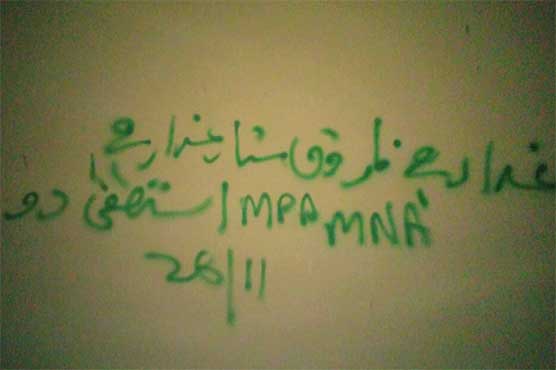 غدار ہے فاروق ستار غدار ہے
MNA MPA استعفیٰ دو
28/11